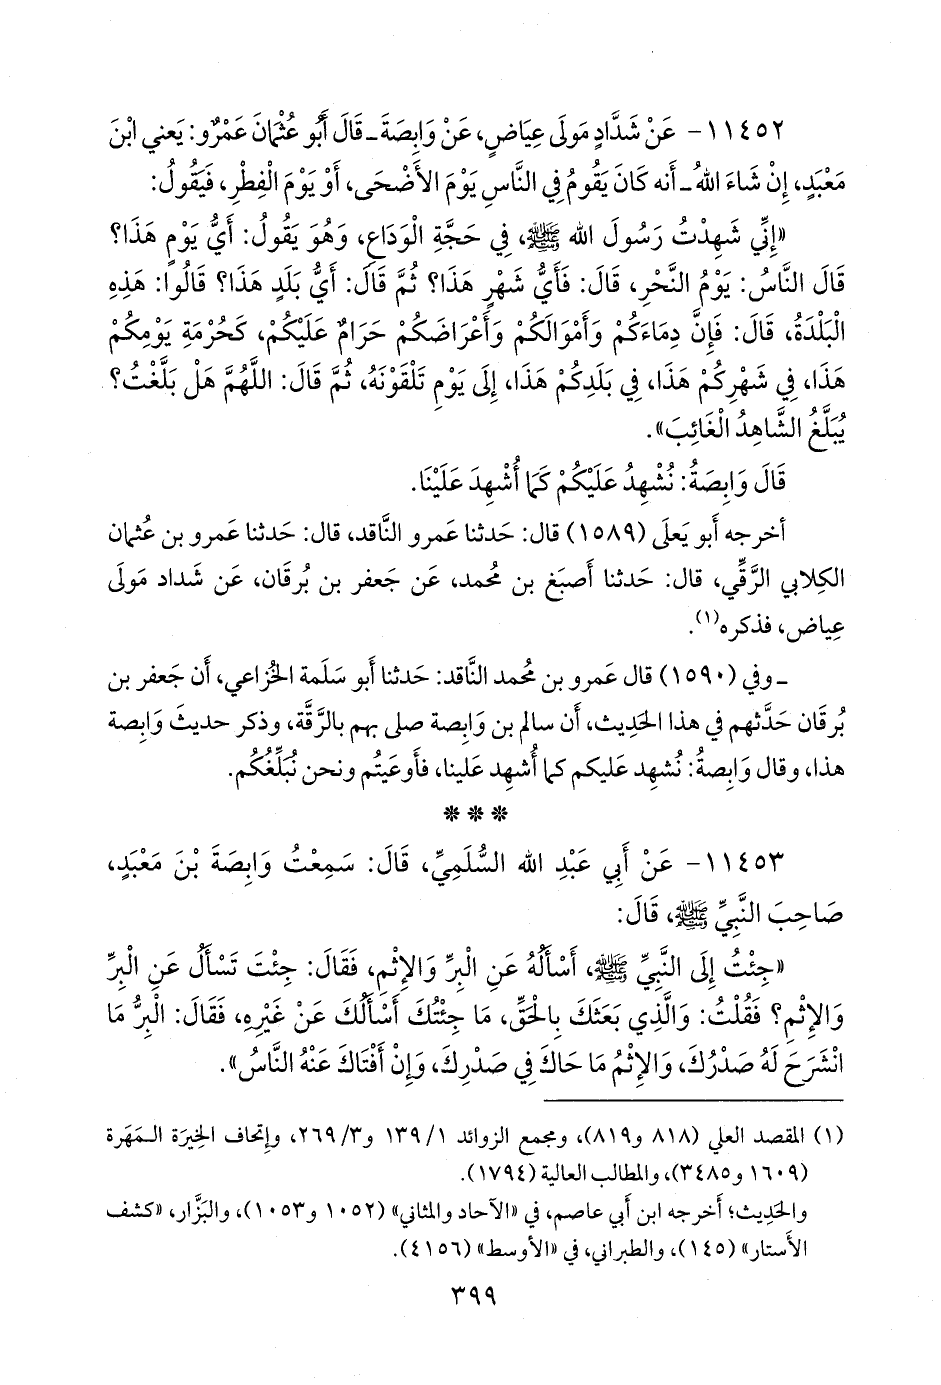 ١١٤٥٢- عَنْ شَدَّادٍ مَولَى عِيَاضٍ، عَنْ وَابِصَةَ ـ قَالَ أَبُو عُثْمَانَ عَمْرٌو: يَعني ابْنَ
مَعْبَدٍ، إِنْ شَاءَ اللهُ ـ أَنه كَانَ يَقُومُ فِي النَّاسِ يَوْمَ الأَضْحَى، أَوْ يَوْمَ الْفِطْرِ، فَيَقُولُ:
«إِنِّي شَهِدْتُ رَسُولَ الله ﷺ، فِي حَجَّةِ الْوَدَاعِ، وَهُوَ يَقُولُ: أَيُّ يَوْمٍ هَذَا؟
قَالَ النَّاسُ: يَوْمُ النَّحْرِ، قَالَ: فَأَيُّ شَهْرٍ هَذَا؟ ثُمَّ قَالَ: أَيُّ بَلَدٍ هَذَا؟ قَالُوا: هَذِهِ
الْبَلْدَةُ، قَالَ: فَإِنَّ دِمَاءَكُمْ وَأَمْوَالَكُمْ وَأَعْرَاضَكُمْ حَرَامٌ عَلَيْكُمْ، كَحُرْمَةِ يَوْمِكُمْ
هَذَا، فِي شَهْرِكُمْ هَذَا، فِي بَلَدِكُمْ هَذَا، إِلَى يَوْمِ تَلْقَوْنَهُ، ثُمَّ قَالَ: اللَّهُمَّ هَلْ بَلَّغْتُ؟
يُبَلِّغُ الشَّاهِدُ الْغَائِبَ».
قَالَ وَابِصَةُ: نُشْهِدُ عَلَيْكُمْ كَمَا أُشْهِدَ عَلَيْنَا.
أخرجه أَبو يَعلَى (١٥٨٩) قال: حَدثنا عَمرو النَّاقد، قال: حَدثنا عَمرو بن عُثمان
الكِلابي الرَّقِّي، قال: حَدثنا أَصبَغ بن مُحمد، عَن جَعفر بن بُرقَان، عَن شَداد مَولَى
عِياض، فذكره(١).
ـ وفي (١٥٩٠) قال عَمرو بن مُحمد النَّاقد: حَدثنا أَبو سَلَمة الخُزاعي، أَن جَعفر بن
بُرقان حَدَّثهم في هذا الحَدِيث، أَن سالم بن وَابِصة صلى بهم بالرَّقَّة، وذكر حديثَ وَابِصة
هذا، وقال وَابِصةُ: نُشهِد عَليكم كما أُشهِد عَلينا، فأَوعَيتُم ونحن نُبَلِّغُكُم.
* * *
١١٤٥٣- عَنْ أَبِي عَبْدِ الله السُّلَمِيِّ، قَالَ: سَمِعْتُ وَابِصَةَ بْنَ مَعْبَدٍ،
صَاحِبَ النَّبِيِّ ﷺ، قَالَ:
«جِئْتُ إِلَى النَّبِيِّ ﷺ، أَسْأَلُهُ عَنِ الْبِرِّ وَالإِثْمِ، فَقَالَ: جِئْتَ تَسْأَلُ عَنِ الْبِرِّ
وَالإِثْمِ؟ فَقُلْتُ: وَالَّذِي بَعَثَكَ بِالْحَقِّ، مَا جِئْتُكَ أَسْأَلُكَ عَنْ غَيْرِهِ، فَقَالَ: الْبِرُّ مَا
انْشَرَحَ لَهُ صَدْرُكَ، وَالإِثْمُ مَا حَاكَ فِي صَدْرِكَ، وَإِنْ أَفْتَاكَ عَنْهُ النَّاسُ».
(١) المقصد العلي (٨١٨ و٨١٩)، ومجمع الزوائد ١/ ١٣٩ و٣/ ٢٦٩، وإتحاف الخِيرَة الـمَهَرة
(١٦٠٩ و٣٤٨٥)، والمطالب العالية (١٧٩٤).
والحَدِيث؛ أخرجه ابن أَبي عاصم، في «الآحاد والمثاني» (١٠٥٢ و١٠٥٣)، والبَزَّار، «كشف
الأَستار» (١٤٥)، والطبراني، في «الأوسط» (٤١٥٦).
٣٩٩